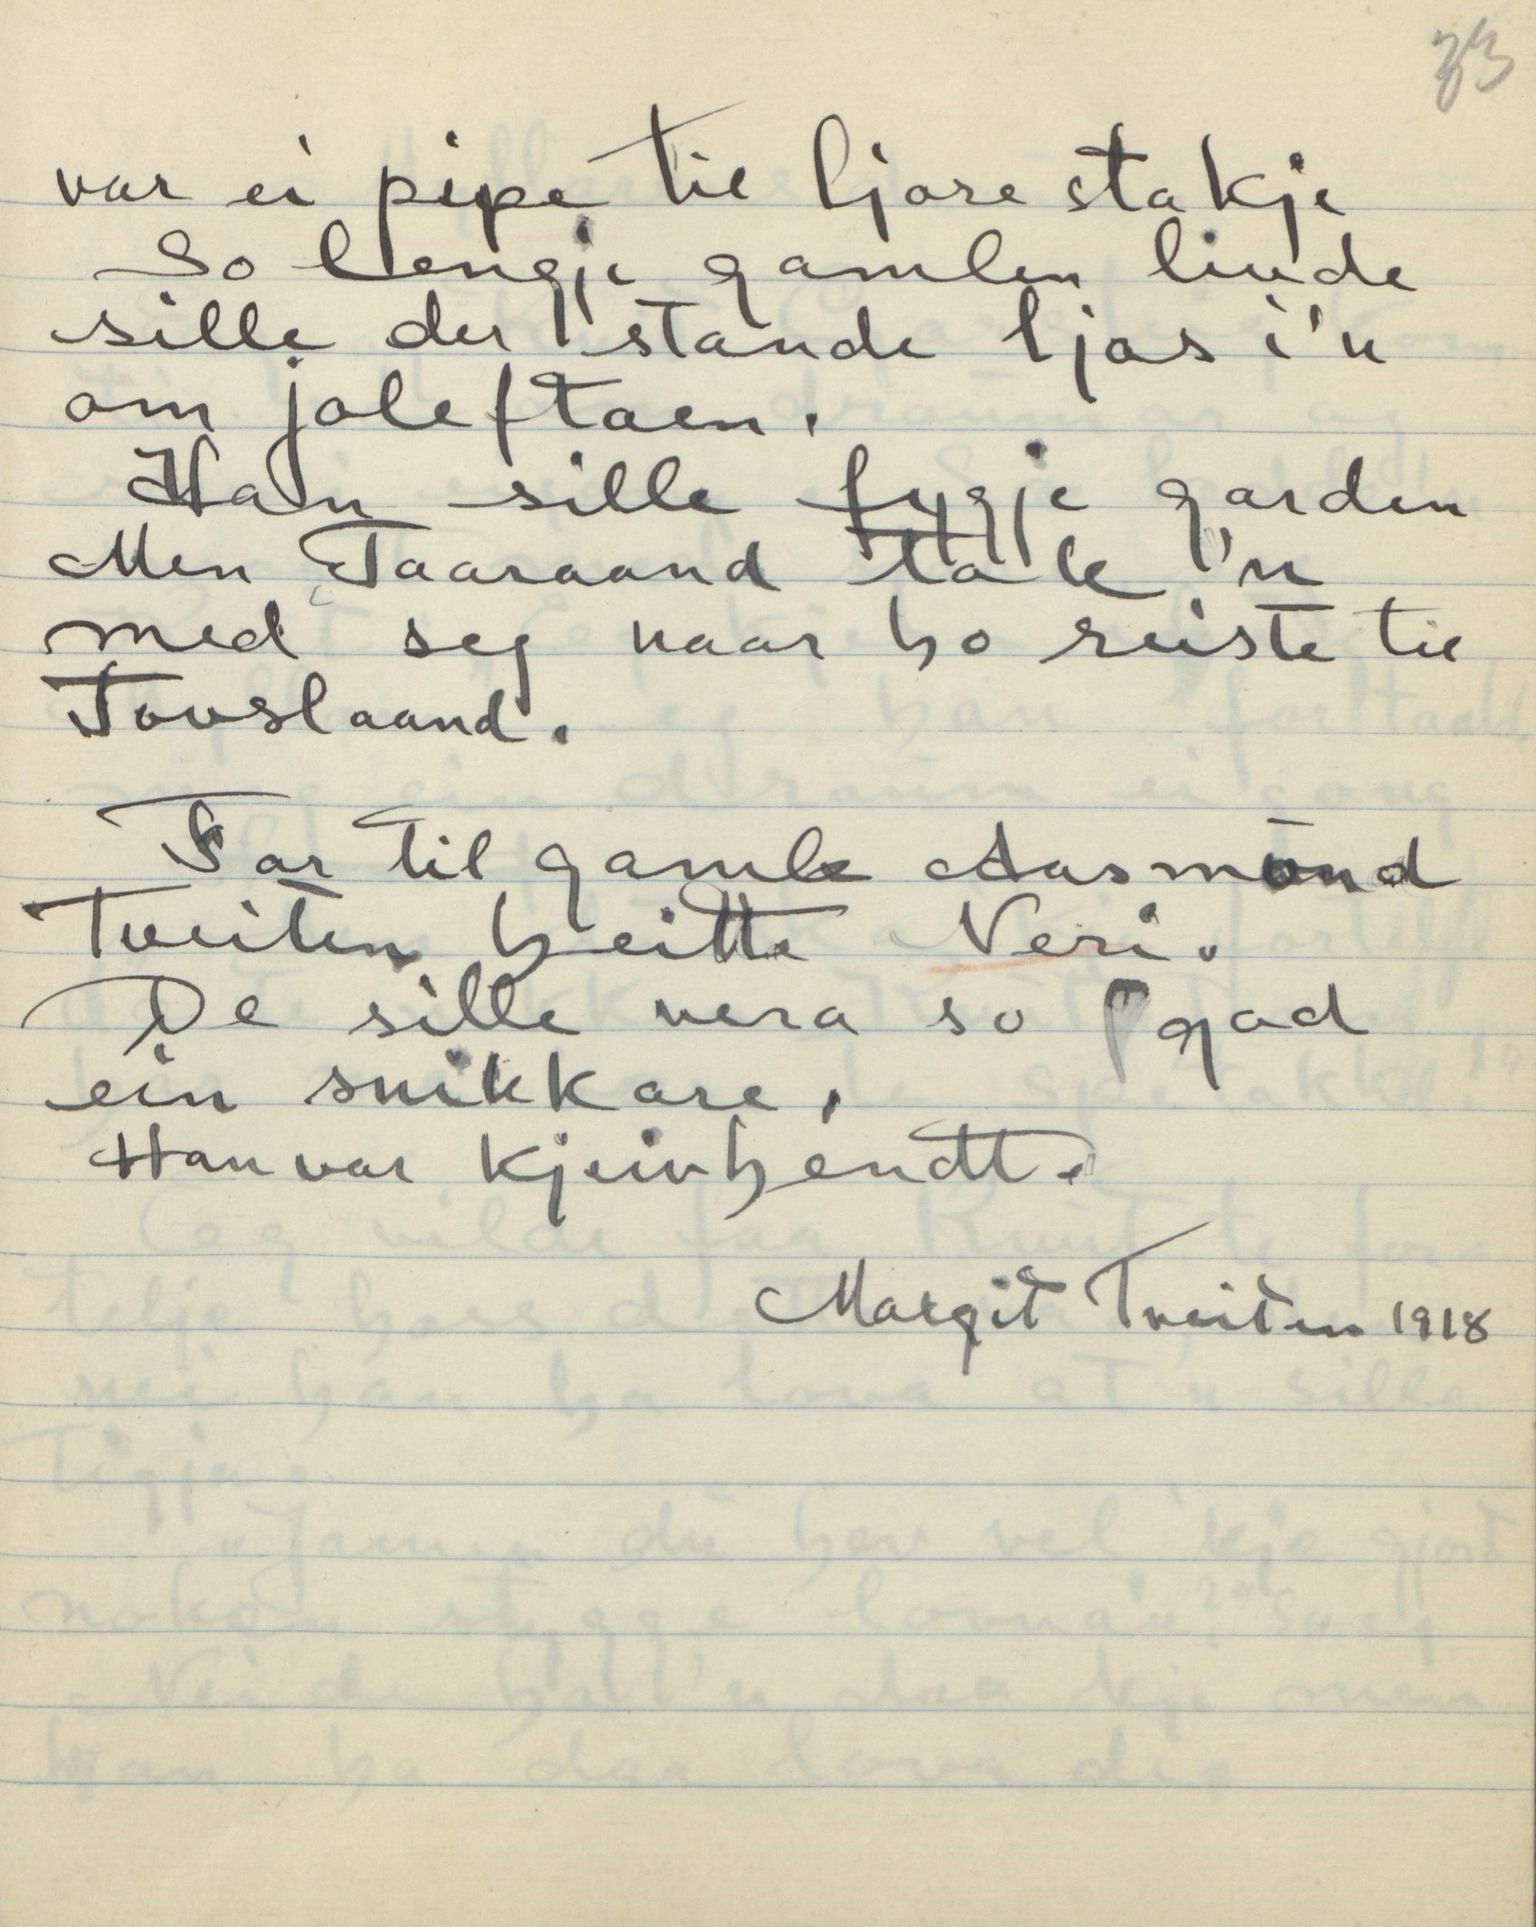 33
var ei pipe til ljorestakje
So lengje gamlen livde
sille der stande ljos i'n
om joleftaen.
Han sille fygje garden
Men Taaraand tok 'n
med seg naar ho reiste til
Tovslaand.
Far til gamle Aasmond
Tveiten heitte Neri.
De sille vera so god
ein snikkare.
Han var kjeivhendt.
Margit Tveiten 1918